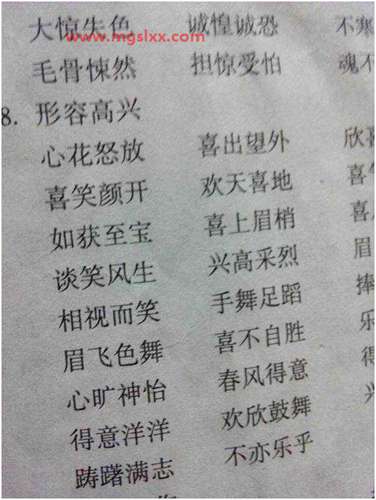 大惊失色 诚惶诚恐 不寒
www.mgslxx.com
毛骨悚然 担惊受怕 魂不
8. 形容高兴
心花怒放 喜出望外 欣喜
喜笑颜开 欢天喜地 喜气
如获至宝 喜上眉梢 喜
谈笑风生 兴高采烈 眉
相视而笑 手舞足蹈 捧
眉飞色舞 喜不自胜 乐
心旷神怡 春风得意 得
得意洋洋 欢欣鼓舞
踌躇满志 不亦乐乎